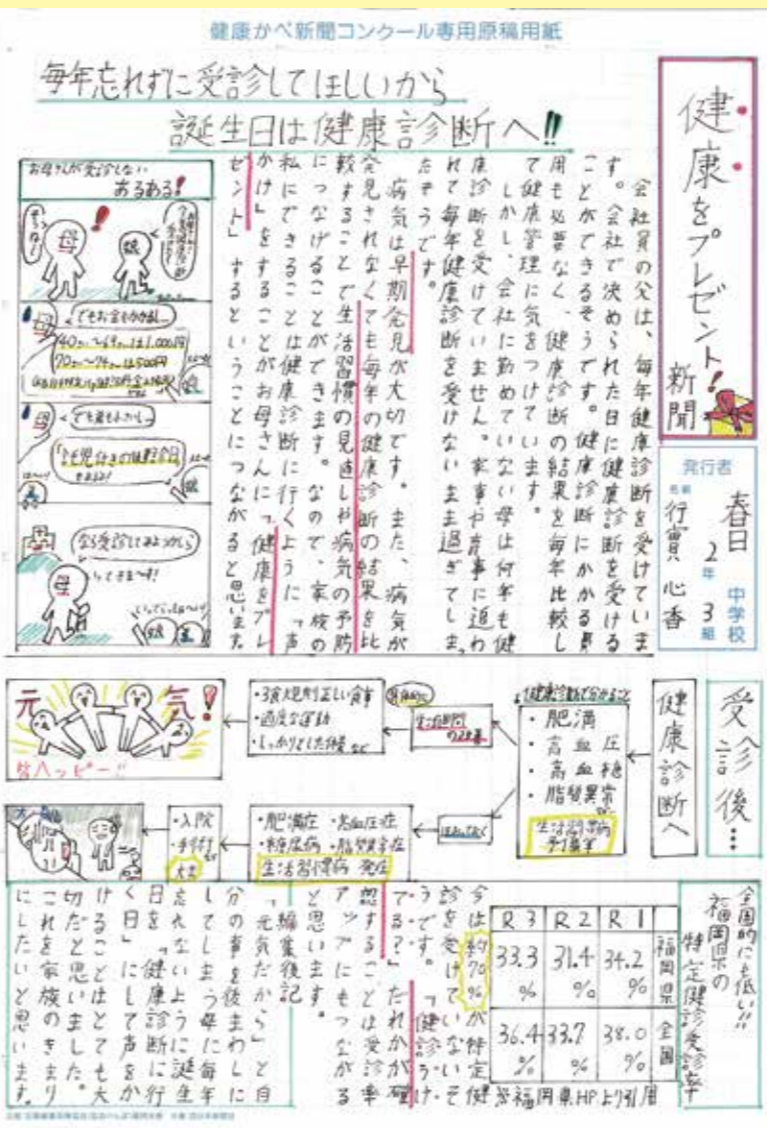 健康かべ新聞コンクール専用原稿用紙
健康をプレゼント!
新聞
発行者
春日 中学校
2年 3組
名前
行實 心香
毎年忘れずに受診してほしいから
誕生日は健康診断へ!!
会社員の父は、毎年健康診断を受けていま
す。会社で決められた日に健康診断を受ける
ことができるそうです。健康診断にかかる費
用も必要なく、健康診断の結果を毎年比較し
て健康管理に気をつけています。
しかし、会社に勤めていない母は何年も健
康診断を受けていません。家事や育事に追わ
れて毎年健康診断を受けないまま過ぎてしま
たそうです。
病気は早期発見が大切です。また、病気が
発見されなくても毎年の健康診断の結果を比
較することで生活習慣の見直しや病気の予防
につなげることができます。なので、家族の
私にできることは健康診断に行くように「声
かけ」をすることがお母さんに「健康をプレ
ゼント」するということにつながると思います。
お母さんが受診しない
あるある!
母
娘
でもお金もかかるし…
40才〜69才は1,000円
70才〜74才は500円
母
娘
母
娘
なら受診してみようかしら
母
いってきま〜す!
いってらっしゃ〜い
娘
受診後…
健康診断へ
健康診断で分かること
・肥満
・高血圧
・高血糖
・脂質異常
など
生活習慣病
予備軍
生活習慣
の改善
・3食規則正しい食事
・適度な運動
・しっかりとした休養 など
元気!
皆ハッピー!!
ほおっておく
・肥満症 ・高血圧症
・糖尿病 ・脂質異常症
生活習慣病 発症
・入院
・手術
など
大変
全国的にも低い!!
福岡県の
特定健診受診率
R3 R2 R1
33.3% 31.4% 34.2% 福岡県
36.4% 33.7% 38.0% 全国
※福岡県HPより引用
今は約70%が特定健
診を受けていないそ
うです。「健診うけ
てる?」だれかが確
認することは受診率
アップにもつながる
と思います。
編集後記
「元気だから」と自
分の事を後まわしに
してしまう母に毎年
忘れないように誕生
日を「健康診断に行
く日」にして声をか
けることはとても大
切だと思いました。
これを家族のきまり
にしたいと思います。